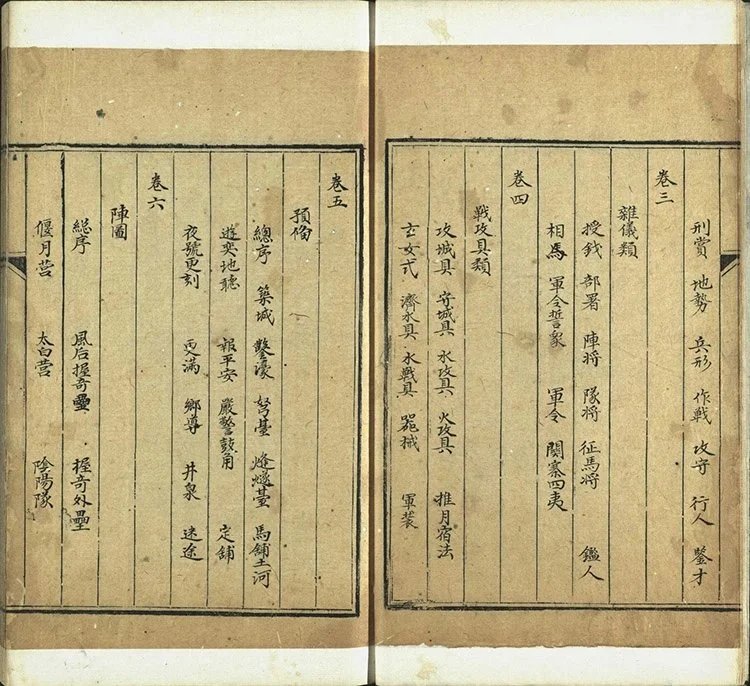 刑賞 地勢 兵形 作戰 攻守 行人 鑒才
卷三
雜儀類
授鉞 部署 陣將 隊將 征馬將 鑑人
相馬 軍令誓衆 軍令 關塞四夷
卷四
戰攻具類
攻城具 守城具 水攻具 火攻具 推月宿法
玄女式 濟水具 水戰具 器械 軍裝
卷五
預俻
總序 築城 鑿濠 弩臺 烽燧臺 馬舖土河
遊奕地聽 報平安 嚴警鼓角 定舖
夜號更刻 更滿 鄉導 井泉 迷途
卷六
陣圖
総序 風后握奇壘 握奇外壘
偃月营 太白营 陰陽隊